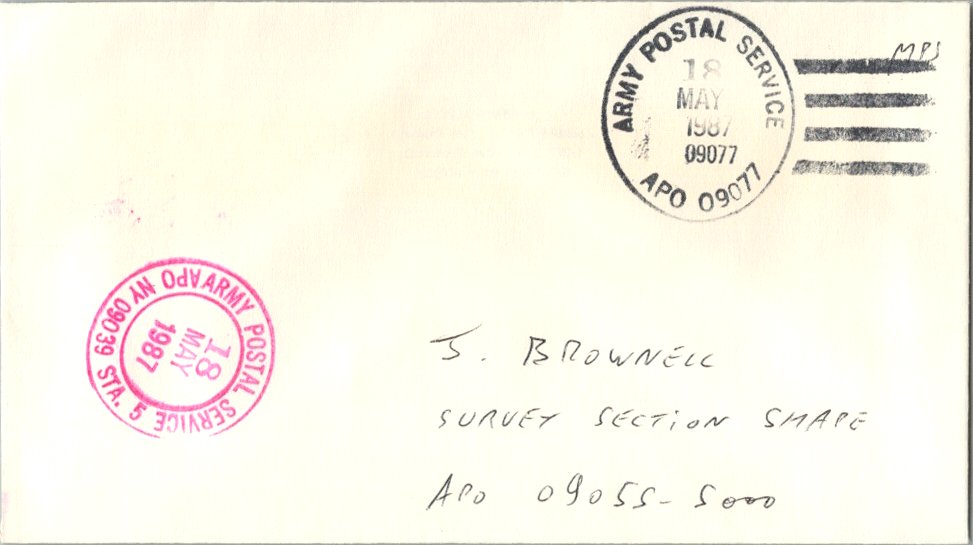 ARMY POSTAL SERVICE
18
MAY
1987
09077
APO 09077
MPS
ARMY POSTAL SERVICE
APO NY 09039 STA. 5
18
MAY
1987
J. BROWNELL
SURVEY SECTION SHAPE
APO 09055-5000